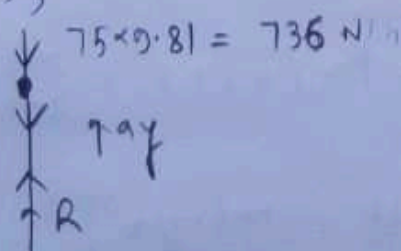 75×9.81 = 736 N
R